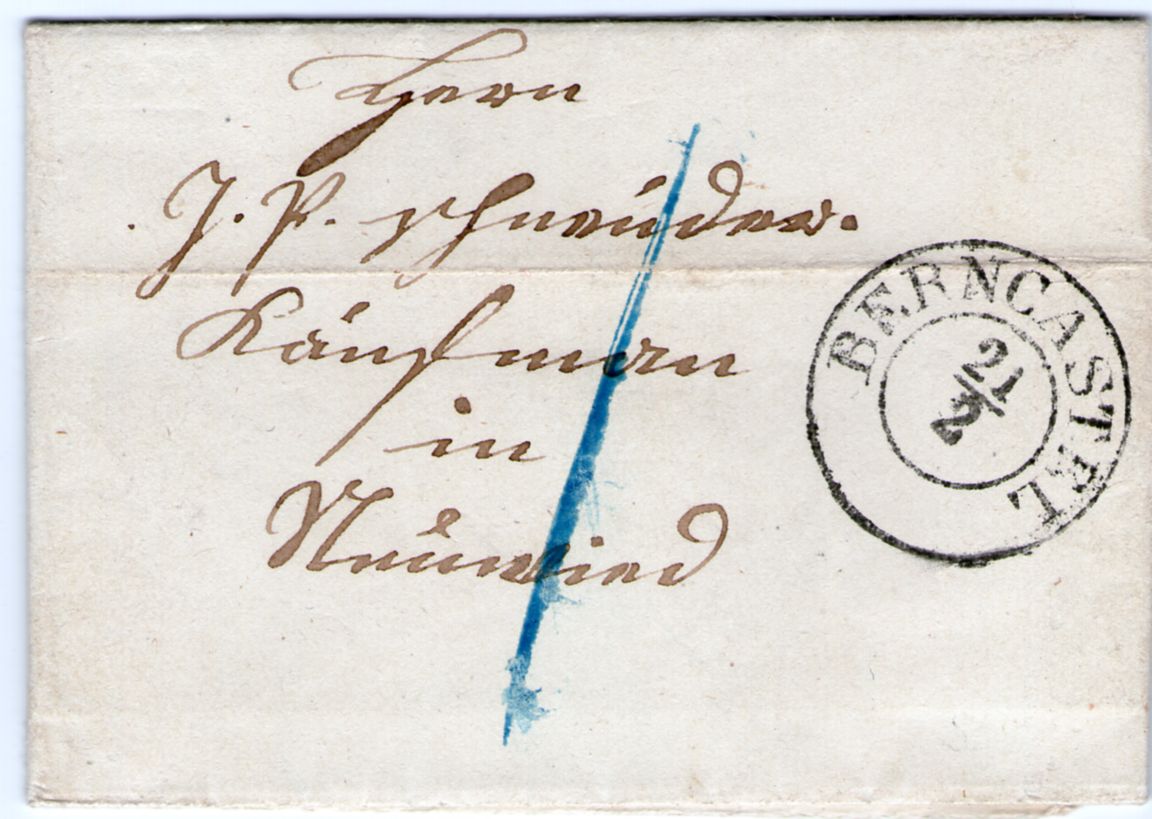 Herrn
J. P. Schneider.
Kaufman
in
Neuwied
BERNCASTEL
21/2
1